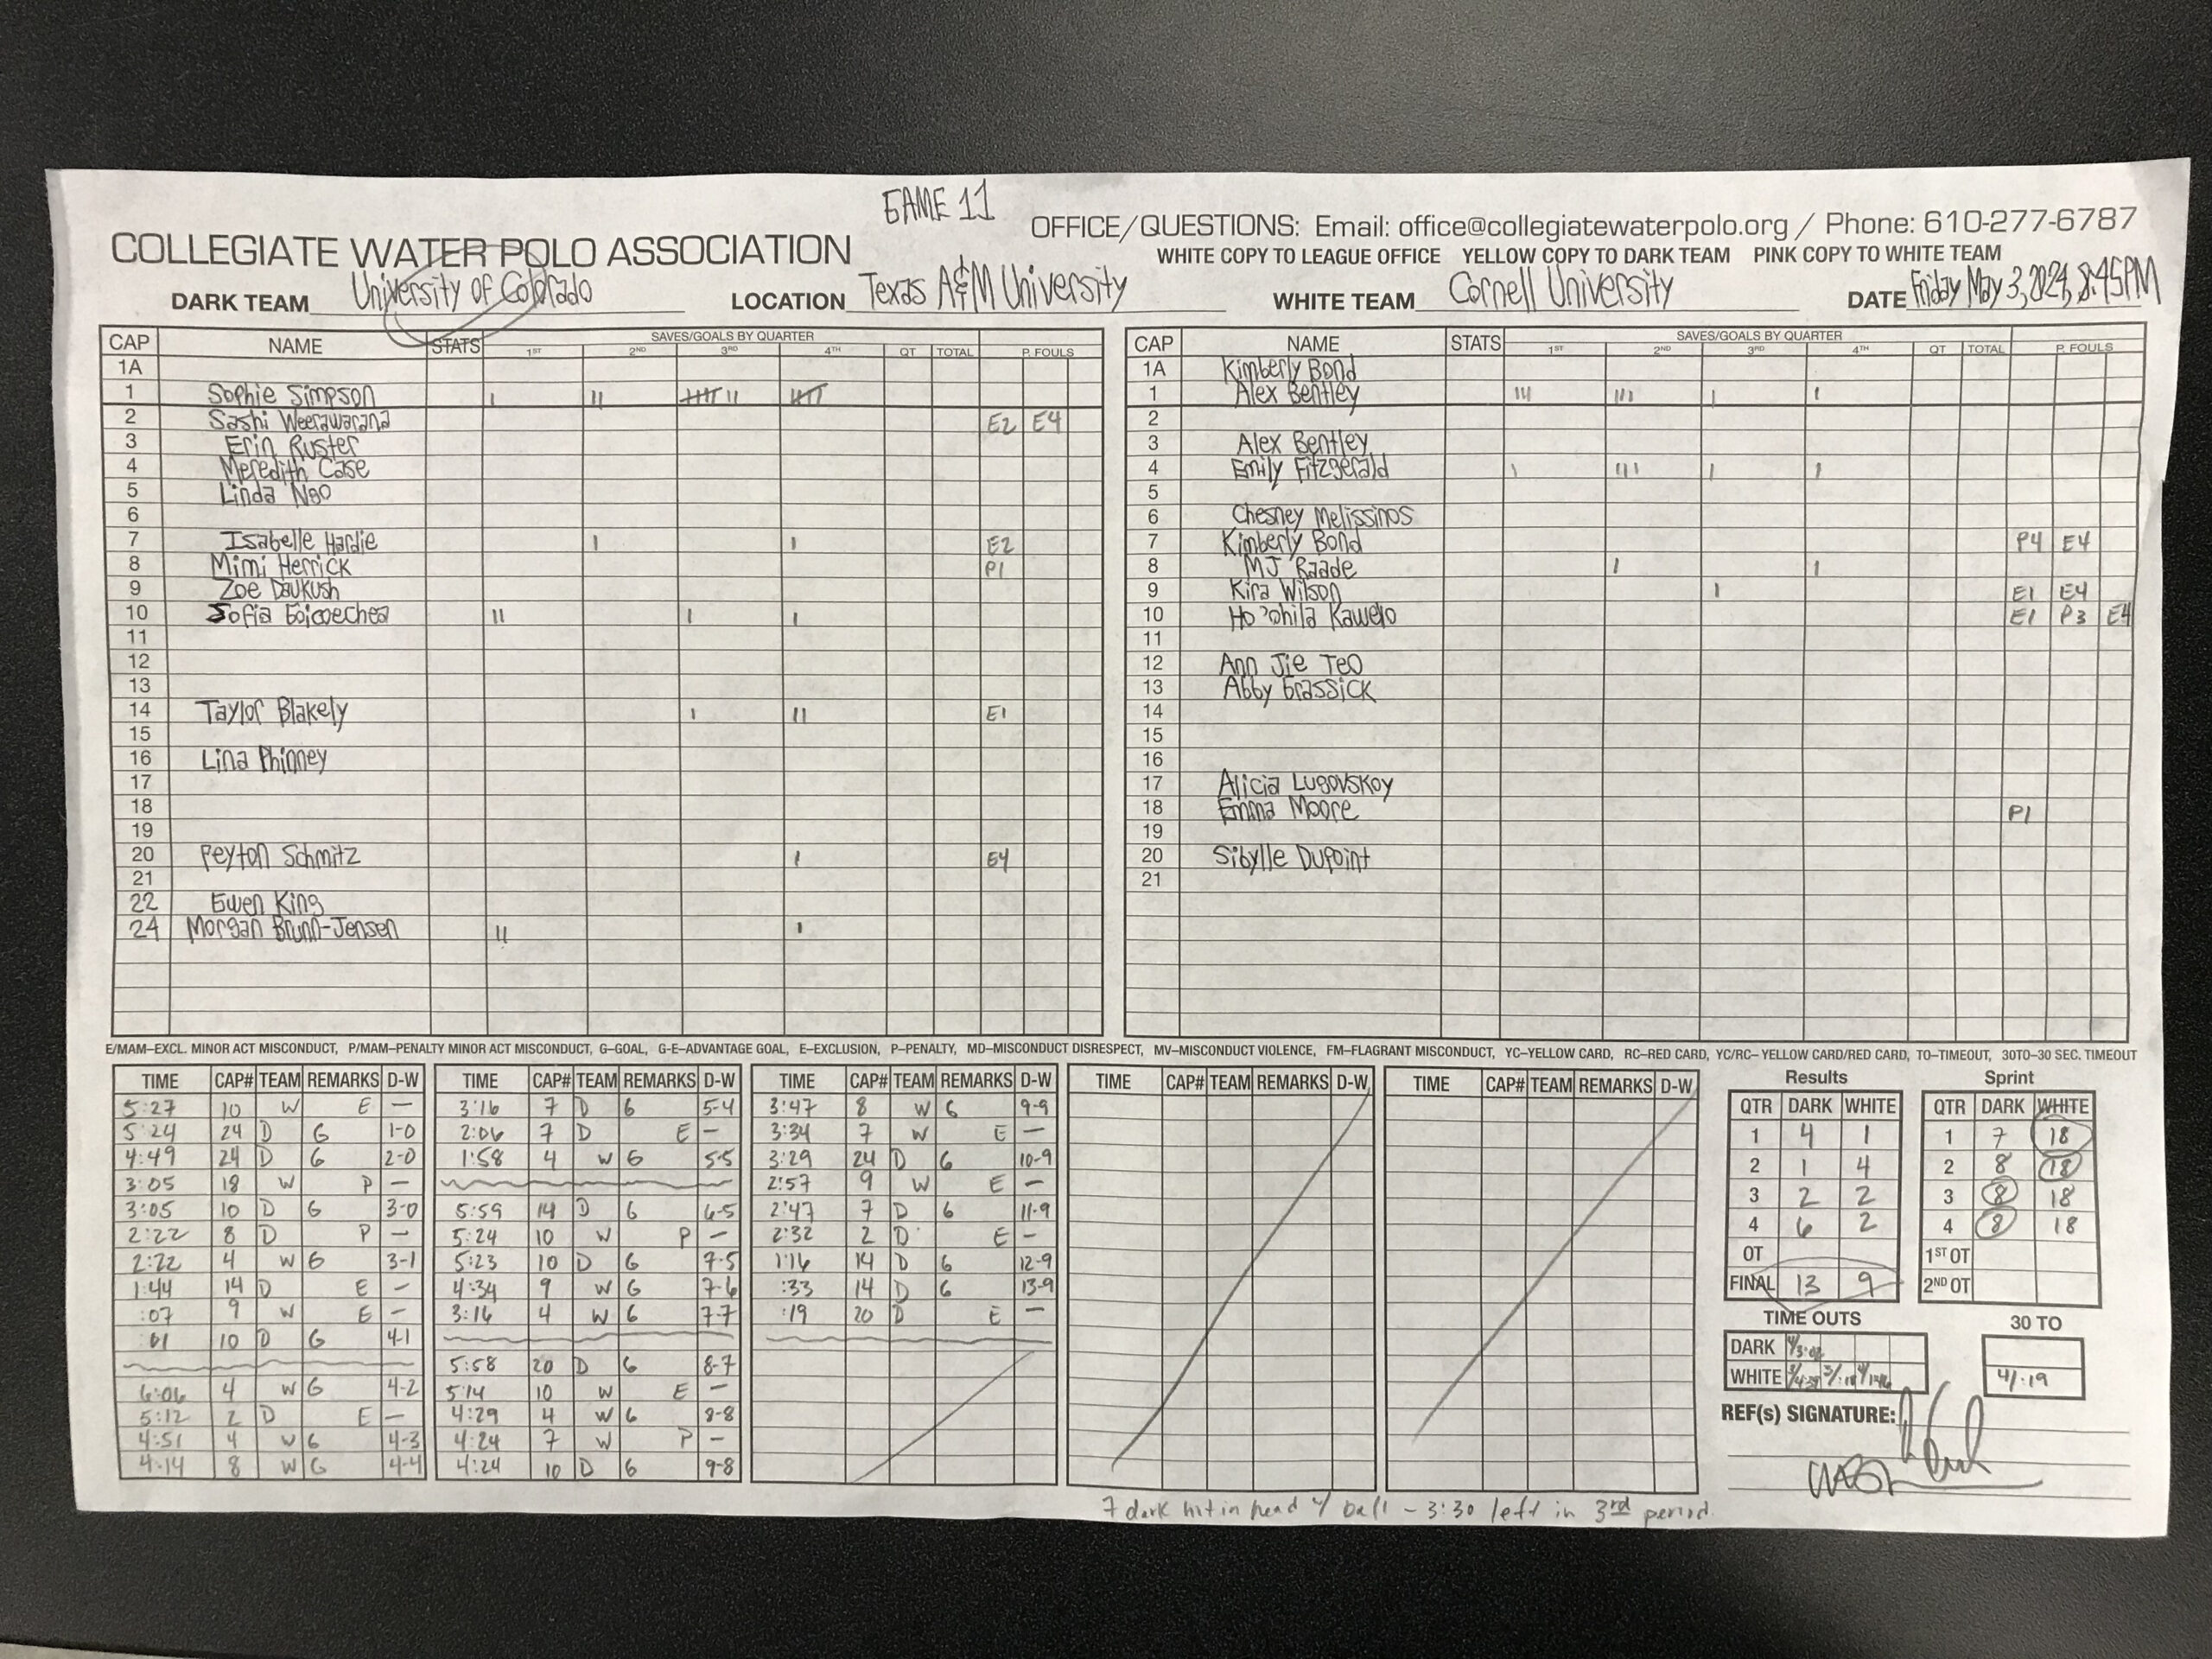 GAME 11
COLLEGIATE WATER POLO ASSOCIATION
OFFICE/QUESTIONS: Email: office@collegiatewaterpolo.org / Phone: 610-277-6787
WHITE COPY TO LEAGUE OFFICE YELLOW COPY TO DARK TEAM PINK COPY TO WHITE TEAM
DARK TEAM University of Colorado LOCATION Texas A&M University WHITE TEAM Cornell University DATE Friday May 3, 2024, 8:45PM
CAP NAME STATS SAVES/GOALS BY QUARTER 1ST 2ND 3RD 4TH OT TOTAL P. FOULS
1A
1 Sophie Simpson I II IIII II IIII
2 Sashi Weerawarana E2 E4
3 Erin Ruster
4 Meredith Case
5 Linda Ngo
6
7 Isabelle Hardie I I E2
8 Mimi Herrick P1
9 Zoe Daukush
10 Sofia Goicoechea II I I
11
12
13
14 Taylor Blakely I II E1
15
16 Lina Phinney
17
18
19
20 Peyton Schmitz I E4
21
22 Gwen King
24 Morgan Brunn-Jensen II I
CAP NAME STATS SAVES/GOALS BY QUARTER 1ST 2ND 3RD 4TH OT TOTAL P. FOULS
1A Kimberly Bond
1 Alex Bentley III III I I
2
3 Alex Bentley
4 Emily Fitzgerald I III I I
5
6 Chesney Melissinos
7 Kimberly Bond P4 E4
8 MJ Raade I I
9 Kira Wilson I E1 E4
10 Ho'ohila Kawelo E1 P3 E4
11
12 Ann Jie Teo
13 Abby Grassick
14
15
16
17 Alicia Lugovskoy
18 Emma Moore P1
19
20 Sibylle Dupoint
21
E/MAM–EXCL. MINOR ACT MISCONDUCT, P/MAM–PENALTY MINOR ACT MISCONDUCT, G–GOAL, G-E–ADVANTAGE GOAL, E–EXCLUSION, P–PENALTY, MD–MISCONDUCT DISRESPECT, MV–MISCONDUCT VIOLENCE, FM–FLAGRANT MISCONDUCT, YC–YELLOW CARD, RC–RED CARD, YC/RC– YELLOW CARD/RED CARD, TO–TIMEOUT, 30TO–30 SEC. TIMEOUT
TIME CAP# TEAM REMARKS D-W
5:27 10 W E –
5:24 24 D G 1-0
4:49 24 D G 2-0
3:05 18 W P –
3:05 10 D G 3-0
2:22 8 D P –
2:22 4 W G 3-1
1:44 14 D E –
:07 9 W E –
:01 10 D G 4-1
6:06 4 W G 4-2
5:12 2 D E –
4:51 4 W G 4-3
4:14 8 W G 4-4
TIME CAP# TEAM REMARKS D-W
3:16 7 D G 5-4
2:06 7 D E –
1:58 4 W G 5-5
5:59 14 D G 6-5
5:24 10 W P –
5:23 10 D G 7-5
4:34 9 W G 7-6
3:16 4 W G 7-7
5:58 20 D G 8-7
5:14 10 W E –
4:29 4 W G 8-8
4:24 7 W P –
4:24 10 D G 9-8
TIME CAP# TEAM REMARKS D-W
3:47 8 W G 9-9
3:34 7 W E –
3:29 24 D G 10-9
2:57 9 W E –
2:47 7 D G 11-9
2:32 2 D E –
1:16 14 D G 12-9
:33 14 D G 13-9
:19 20 D E –
TIME CAP# TEAM REMARKS D-W
TIME CAP# TEAM REMARKS D-W
Results
QTR DARK WHITE
1 4 1
2 1 4
3 2 2
4 6 2
OT
FINAL 13 9
Sprint
QTR DARK WHITE
1 7 18
2 8 18
3 8 18
4 8 18
1ST OT
2ND OT
TIME OUTS
DARK
WHITE
30 TO
4/:19
REF(s) SIGNATURE:
7 dark hit in head w/ ball – 3:30 left in 3rd period